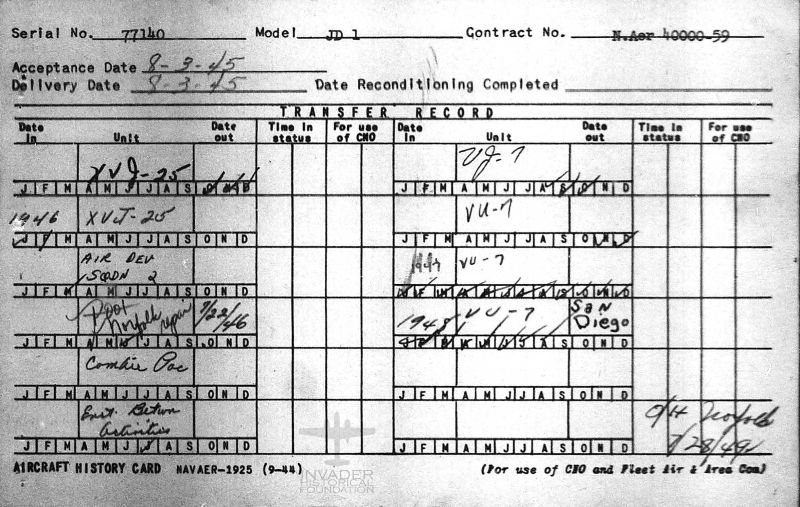 Serial No. 77140 Model JD 1 Contract No. N.Aer 40000-59
Acceptance Date 8-3-45
Delivery Date 8-3-45 Date Reconditioning Completed
TRANSFER RECORD
Date in Unit Date out Time in status For use of CNO Date in Unit Date out Time in status For use of CNO
XVJ-25 VJ-7
J F M A M J J A S O N D J F M A M J J A S O N D
1946 XVJ-25 VU-7
J F M A M J J A S O N D J F M A M J J A S O N D
AIR DEV 1947 VU-7
SQDN 2
J F M A M J J A S O N D J F M A M J J A S O N D
Norfolk repair 7/22/46 1948 VU-7 San Diego
J F M A M J J A S O N D J F M A M J J A S O N D
ComAir Pac
J F M A M J J A S O N D J F M A M J J A S O N D
Betwn O/H Norfolk
Activities 7/28/49
J F M A M J J A S O N D J F M A M J J A S O N D
AIRCRAFT HISTORY CARD NAVAER-1925 (9-44) (For use of CNO and Fleet Air & Area Com)
INVADER
HISTORICAL
FOUNDATION